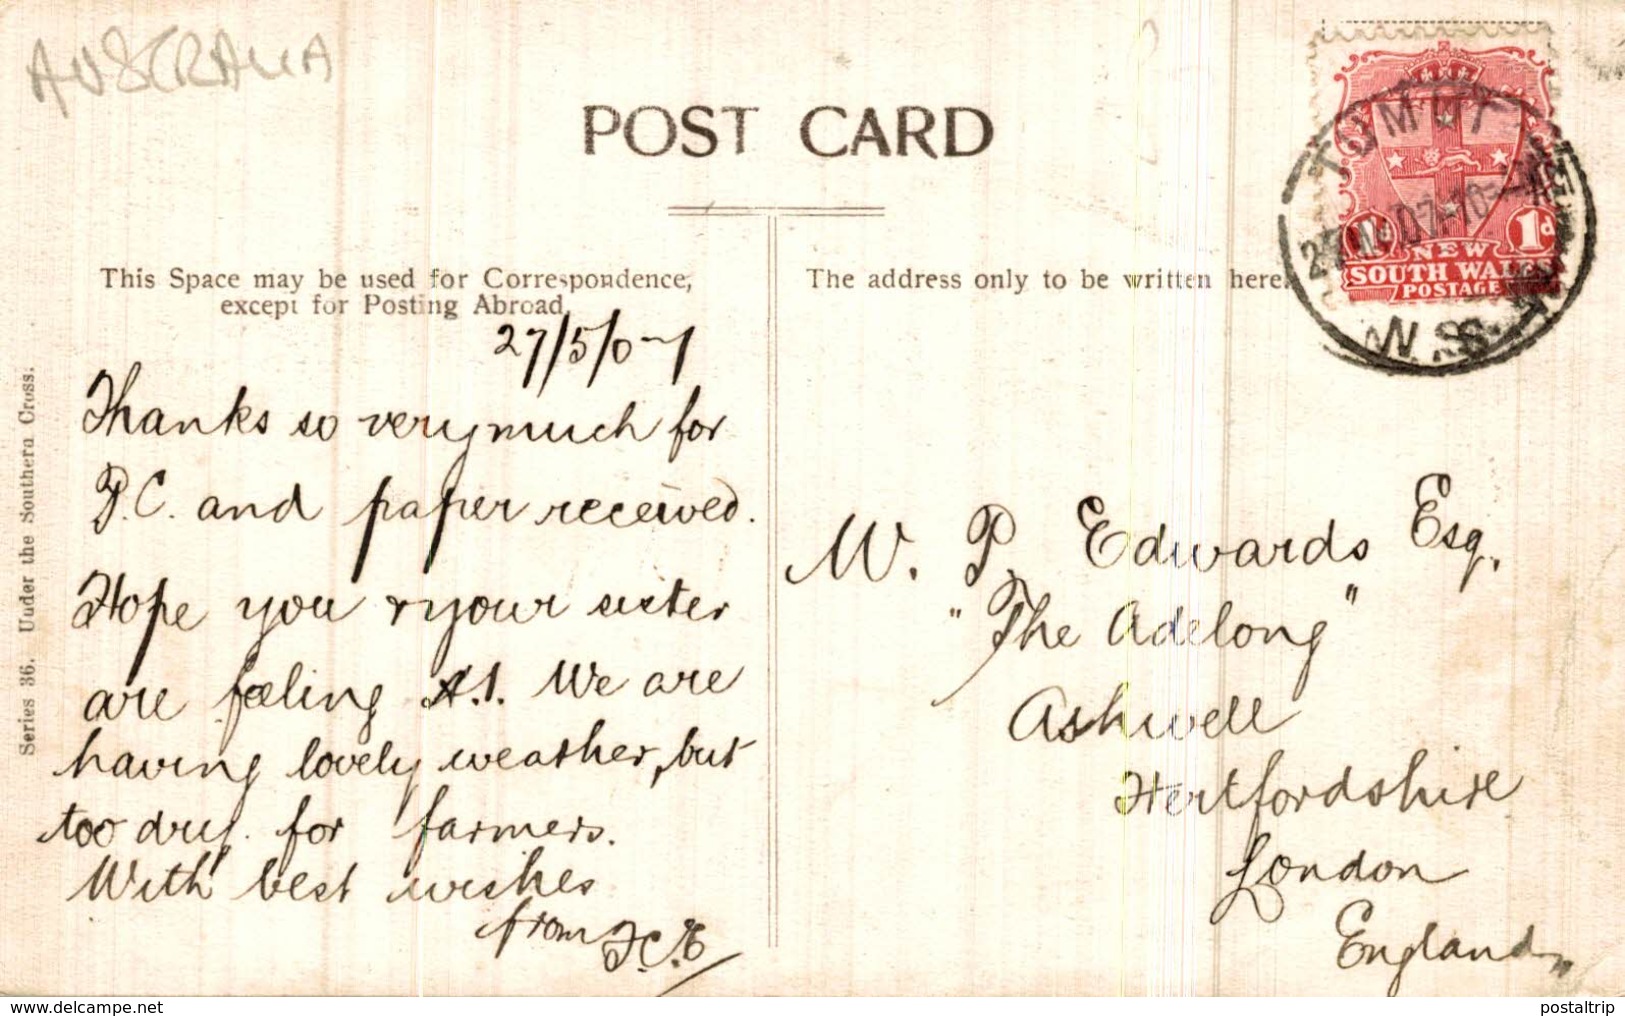 AUSTRALIA
POST CARD
This Space may be used for Correspondence,
except for Posting Abroad.
The address only to be written here.
NEW
SOUTH WALES
POSTAGE
1d
1d
TUMUT
N.S.W
Series 36. Under the Southern Cross.
27/5/07
Thanks so very much for
P.C. and paper received.
Hope you & your sister
are feeling A.1. We are
having lovely weather, but
too dry for farmers.
With best wishes
from
W. P. Edwards Esq.
"The Adelong"
Ashwell
Hertfordshire
London
England
postaltrip